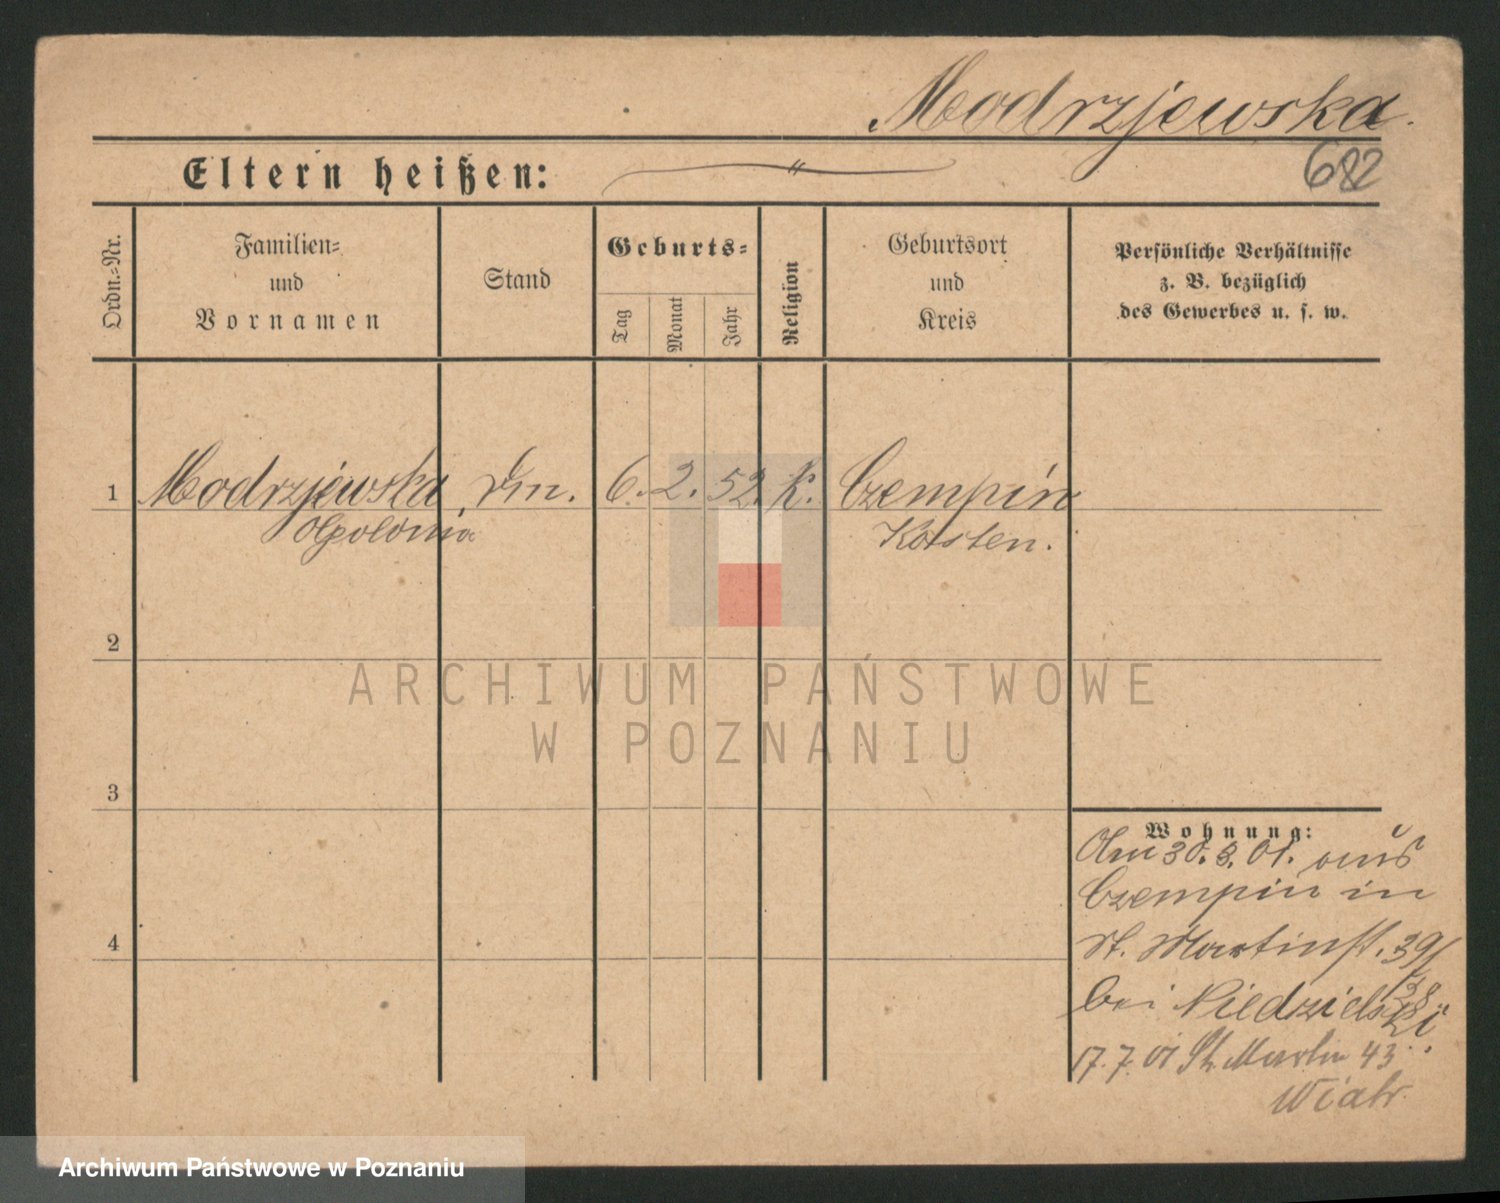 Modrzejewska.
682
Eltern heißen: "
Ordn.-Nr.
Familien-
und
Vornamen
Stand
Geburts-
Tag
Monat
Jahr
Religion
Geburtsort
und
Kreis
Persönliche Verhältnisse
z. B. bezüglich
des Gewerbes u. s. w.
1 Modrzejewska 6. 2. 52. K. Czempin
Apolonia Kosten.
2
3
4
ARCHIWUM PAŃSTWOWE
W POZNANIU
Wohnung:
Am 30. 3. 01. aus
Czempin in
St. Martinst. 39/
38
bei Niedzielski.
17. 7. 01 St. Martin 43
Wiatr.
Archiwum Państwowe w Poznaniu